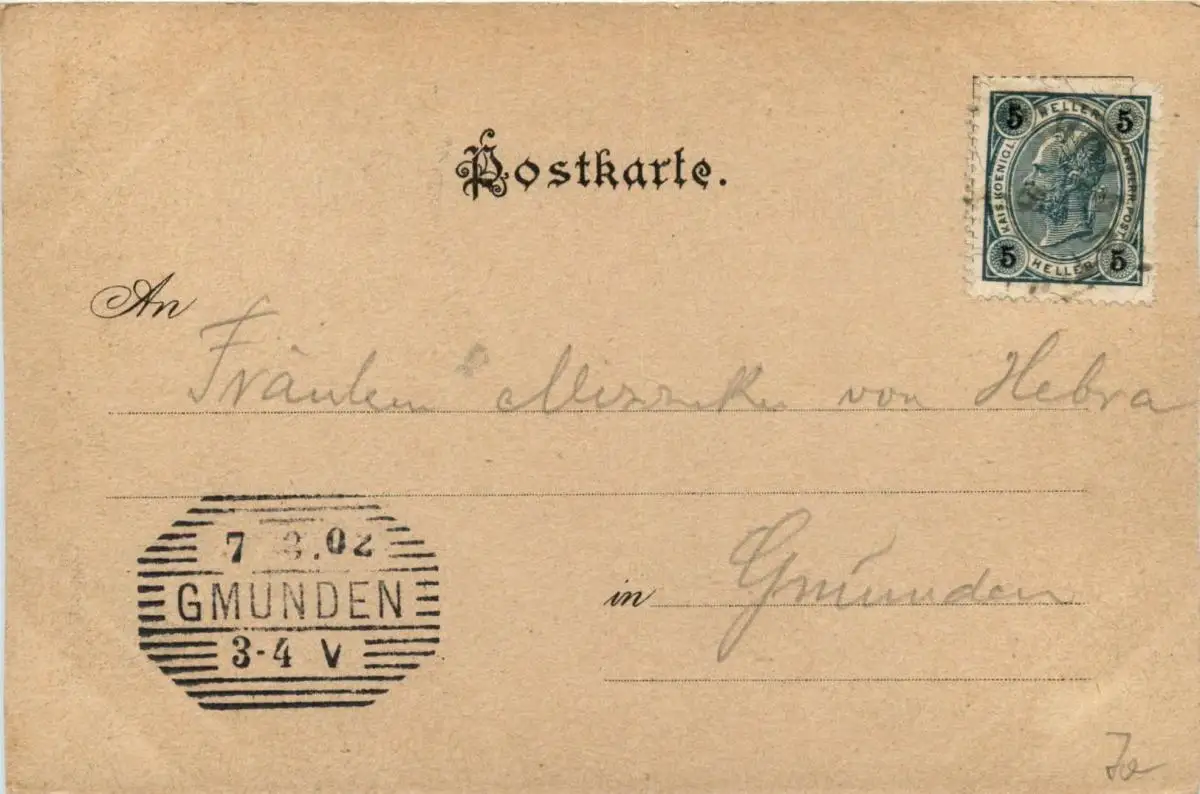 Postkarte.
5 HELLER 5
KAIS. KOENIGL. OESTERR. POST
5 HELLER 5
An
Fräulein Mizzi von Hebra
7 8.02
GMUNDEN
3-4 V
in Gmunden